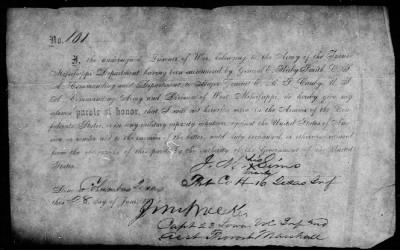 No. 101
I, the undersigned, Prisoner of War, belonging to the Army of the Trans-
Mississippi Department, having been surrendered by General E. Kirby Smith, C. S.
A., Commanding said Department, to Major General E. R. S. Canby, U. S.
A., Commanding Army and Division of West Mississippi, do hereby give my
solemn parole of honor, that I will not hereafter serve in the Armies of the Con-
federate States, or in any military capacity whatever, against the United States of Amer-
ica, or render aid to the enemies of the latter, until duly exchanged, or otherwise released
from the obligations of this parole by the authority of the Government of the United
States.
his
Sims
mark
Co H 16 Texas Inf
Done at Columbus Texas
this 28 day of June
Capt 23 Iowa Vol Inf and
Provost Marshall